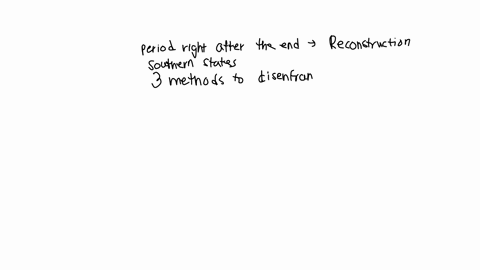 period right after the end → Reconstruction
Southern States
3 methods to disenfran